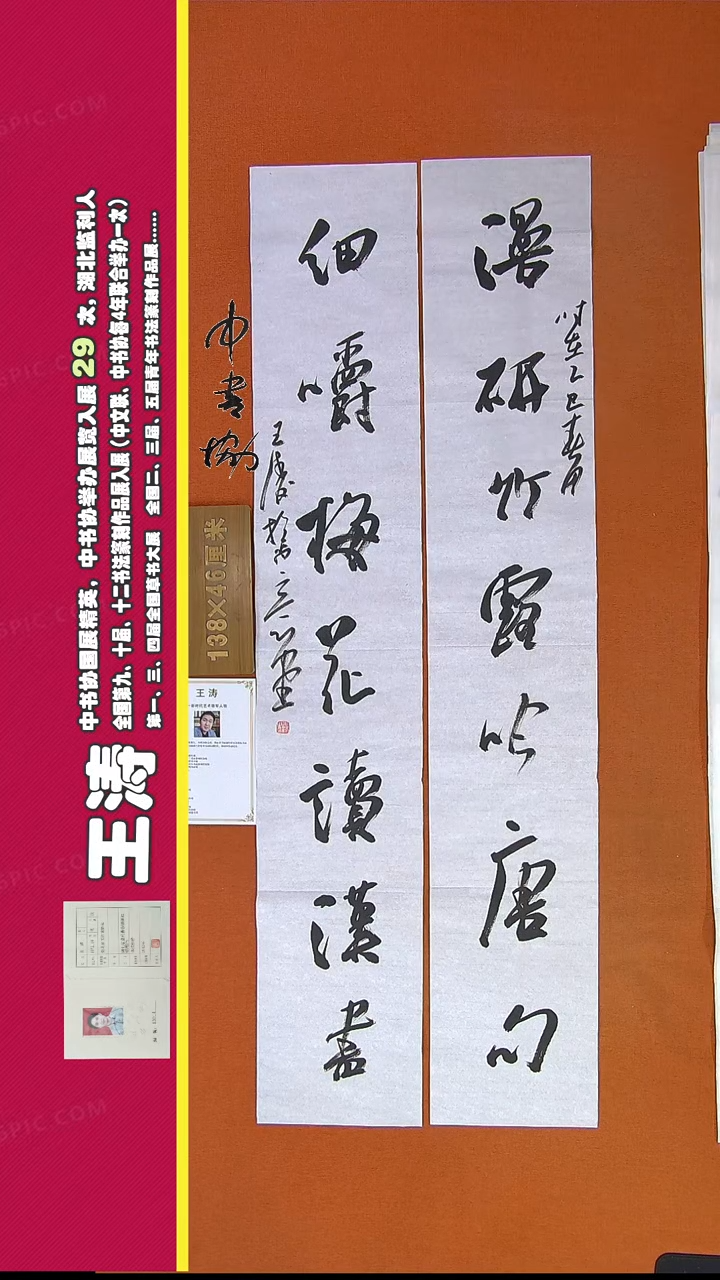 漫研竹露吟唐句
时在乙巳春月
细嚼梅花读汉書
王涛书于三一堂
中書協
138×46厘米
王涛
王涛
中书协国展精英，中书协举办展赛入展29次，湖北监利人
全国第九、十届、十二书法篆刻作品展入展（中文联、中书协每4年联合举办一次）
第一、三、四届全国草书大展 全国二、三届、五届青年书法篆刻作品展......